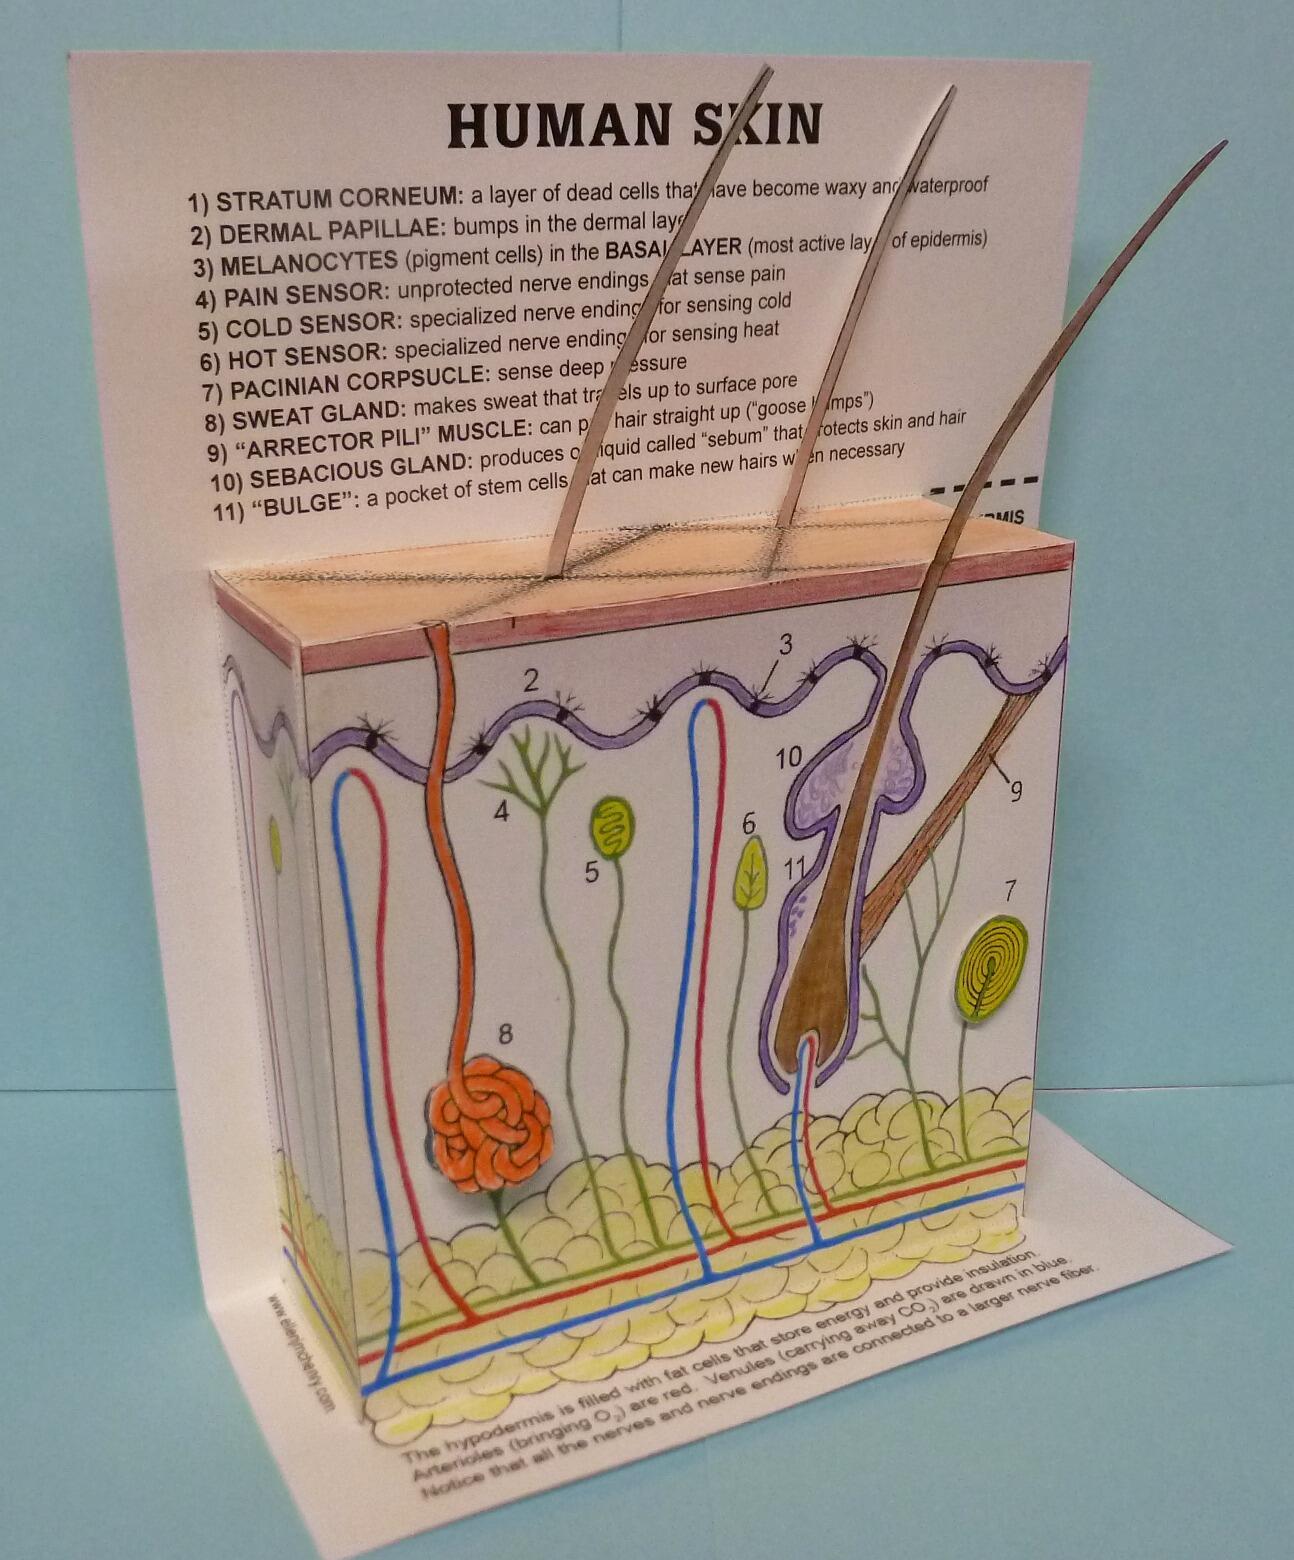 HUMAN SKIN
1) STRATUM CORNEUM: a layer of dead cells that have become waxy and waterproof
2) DERMAL PAPILLAE: bumps in the dermal laye
3) MELANOCYTES (pigment cells) in the BASAL LAYER (most active lay of epidermis)
4) PAIN SENSOR: unprotected nerve endings that sense pain
5) COLD SENSOR: specialized nerve ending for sensing cold
6) HOT SENSOR: specialized nerve ending for sensing heat
7) PACINIAN CORPSUCLE: sense deep pressure
8) SWEAT GLAND: makes sweat that travels up to surface pore
9) “ARRECTOR PILI” MUSCLE: can pull hair straight up (“goose bumps”)
10) SEBACIOUS GLAND: produces oily liquid called “sebum” that protects skin and hair
11) “BULGE”: a pocket of stem cells that can make new hairs when necessary
3
2
10
9
4
6
5
11
7
8
The hypodermis is filled with fat cells that store energy and provide insulation.
Arterioles (bringing O₂) are red. Venules (carrying away CO₂) are drawn in blue.
Notice that all the nerves and nerve endings are connected to a larger nerve fiber.
www.ellenjmchenry.com